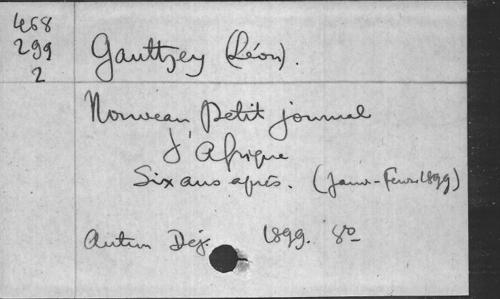 468
299
2
Gauthey (Léon).
Nouveau Petit journal
d'Afrique
Six ans après. (Janv-Févr 1899)
Autun Dej. 1899. 8º